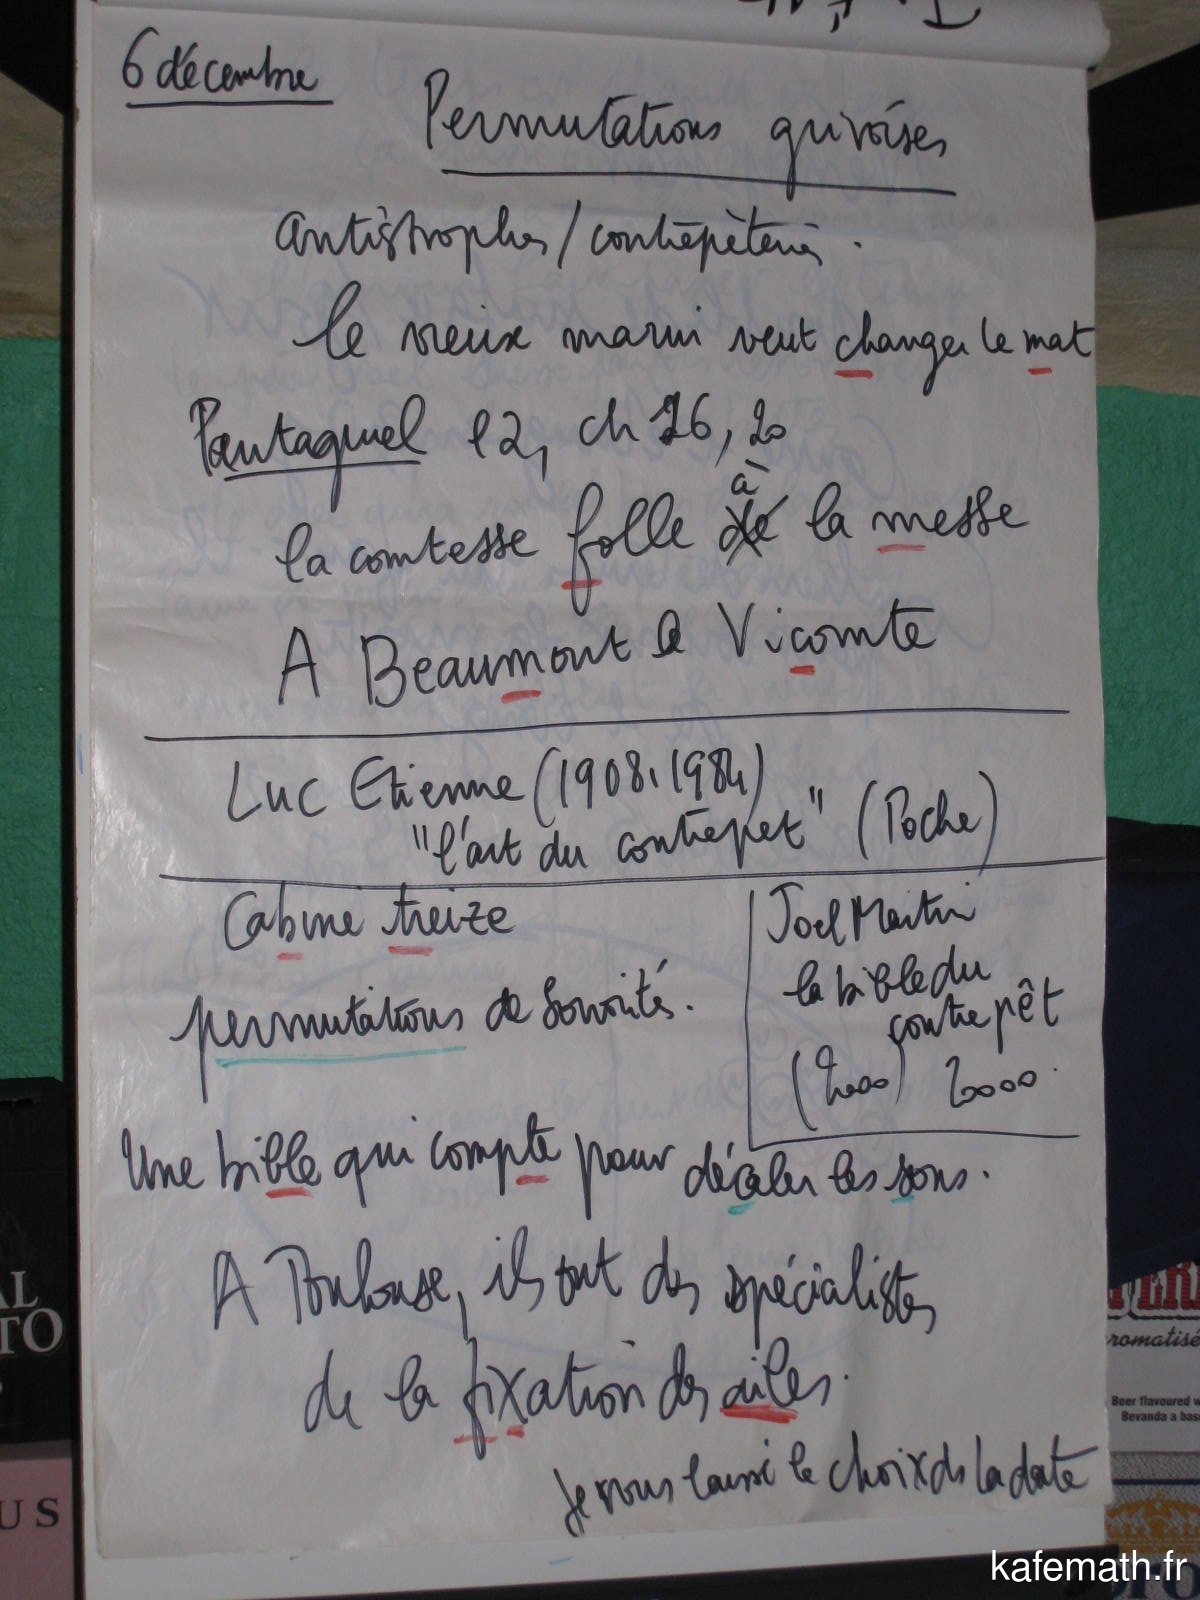 6 décembre
Permutations grivoises
antistrophes / contrepèteries.
le vieux marin veut changer le mat
Pantagruel l2, ch 16, 20
à
la comtesse folle de la messe
A Beaumont le Vicomte
Luc Etienne (1908.1984)
"l'art du contrepet" (Poche)
Cabine treize
permutations de sonorités.
Joel Martin
la bible du
contrepêt
(2000) 20000.
Une bible qui compte pour décaler les sons.
A Toulouse, ils ont des spécialistes
de la fixation des ailes.
Je vous laisse le choix de la date
AL
TO
US
Beer flavoured w
Bevanda a bas
romatisé
kafemath.fr